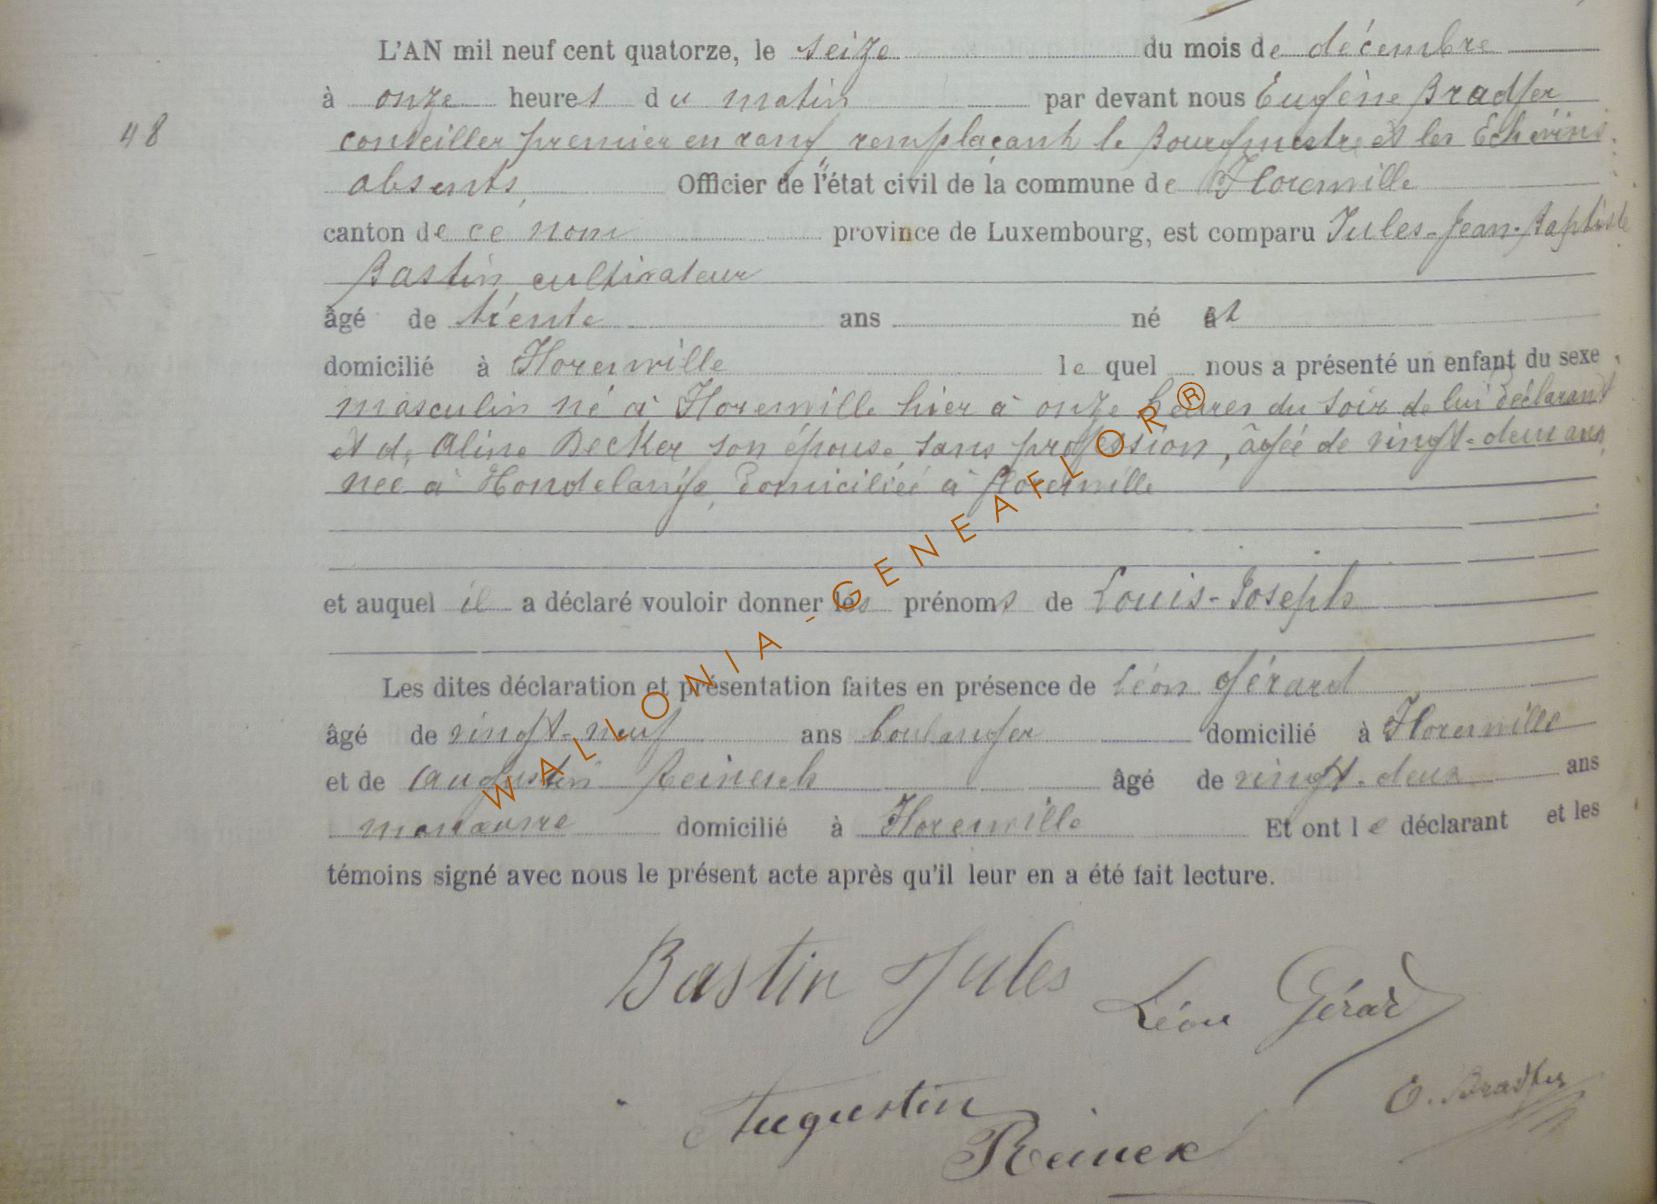 L'AN mil neuf cent quatorze, le seize du mois de décembre
48
à onze heures du matin par devant nous Eugène Bradfer
conseiller premier en rang remplaçant le Bourgmestre et les Echevins
absents, Officier de l'état civil de la commune de Florenville
canton de ce nom province de Luxembourg, est comparu Jules-Jean-Baptiste
Bastin, cultivateur
âgé de trente ans né et
domicilié à Florenville lequel nous a présenté un enfant du sexe
masculin né à Florenville hier à onze heures du soir de lui déclarant
et de Aline Decker son épouse sans profession, âgée de vingt-deux ans,
née à Hondelange, domiciliée à Florenville
et auquel il a déclaré vouloir donner les prénoms de Louis-Joseph
Les dites déclaration et présentation faites en présence de Léon Gérard
âgé de vingt-neuf ans boulanger domicilié à Florenville
et de Augustin Reinesch âgé de vingt-deux ans
manœuvre domicilié à Florenville Et ont le déclarant et les
témoins signé avec nous le présent acte après qu'il leur en a été fait lecture.
Bastin Jules
Léon Gérard
E. Bradfer
Augustin
WALLONIA-GENEAFLOR®